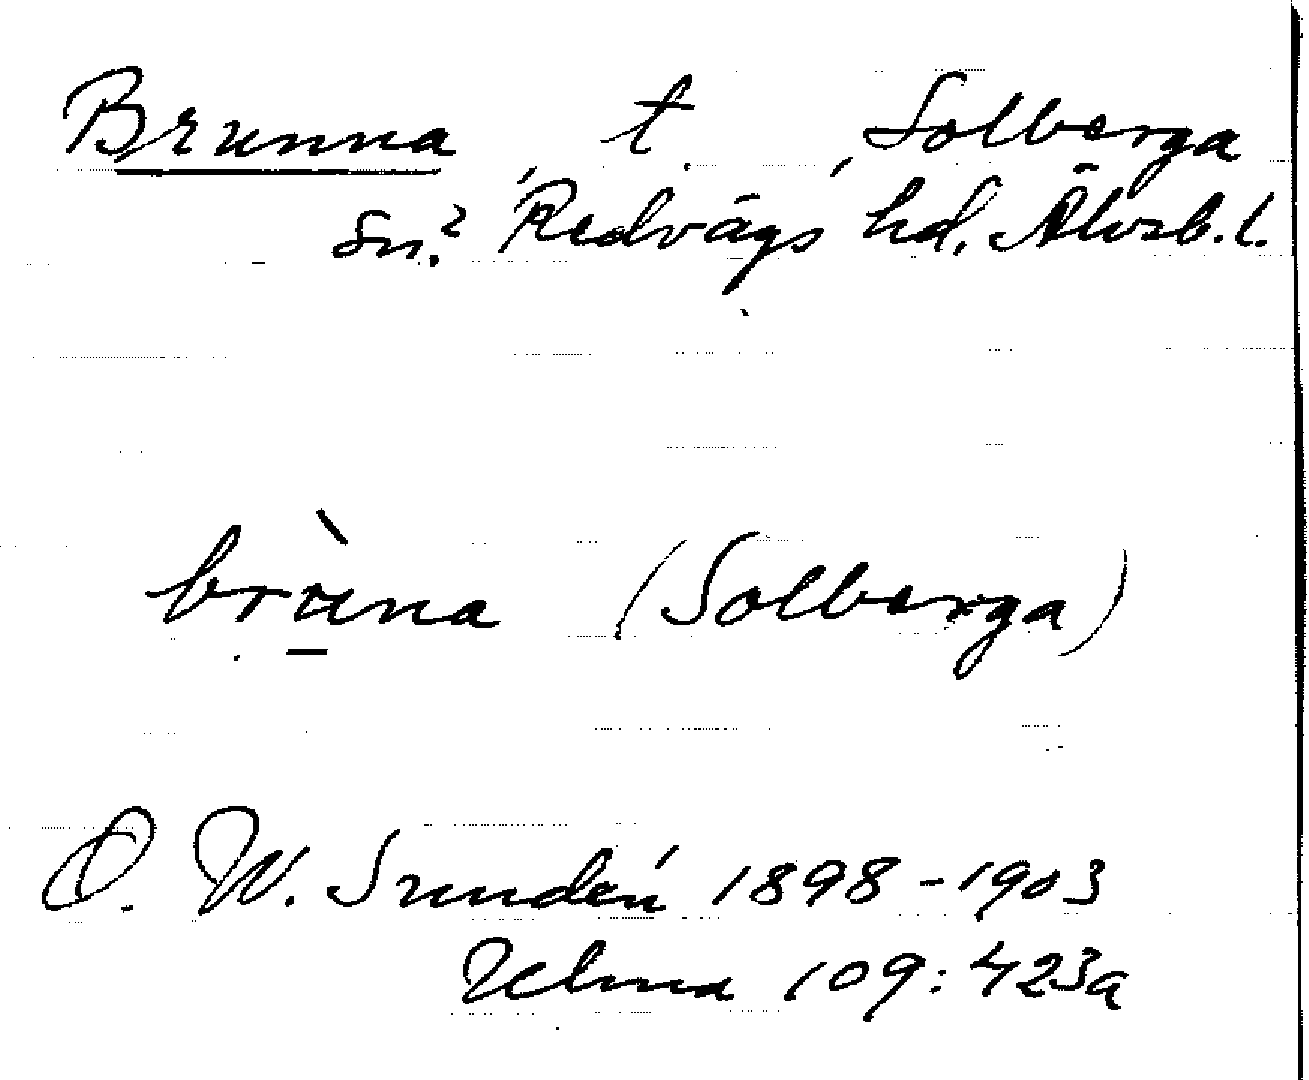 Brunna, t., Solberga
sn.? Redvägs hd, Älvsb. l.
brùna (Solberga)
O. W. Sundén 1898-1903
Ulma 109:423a